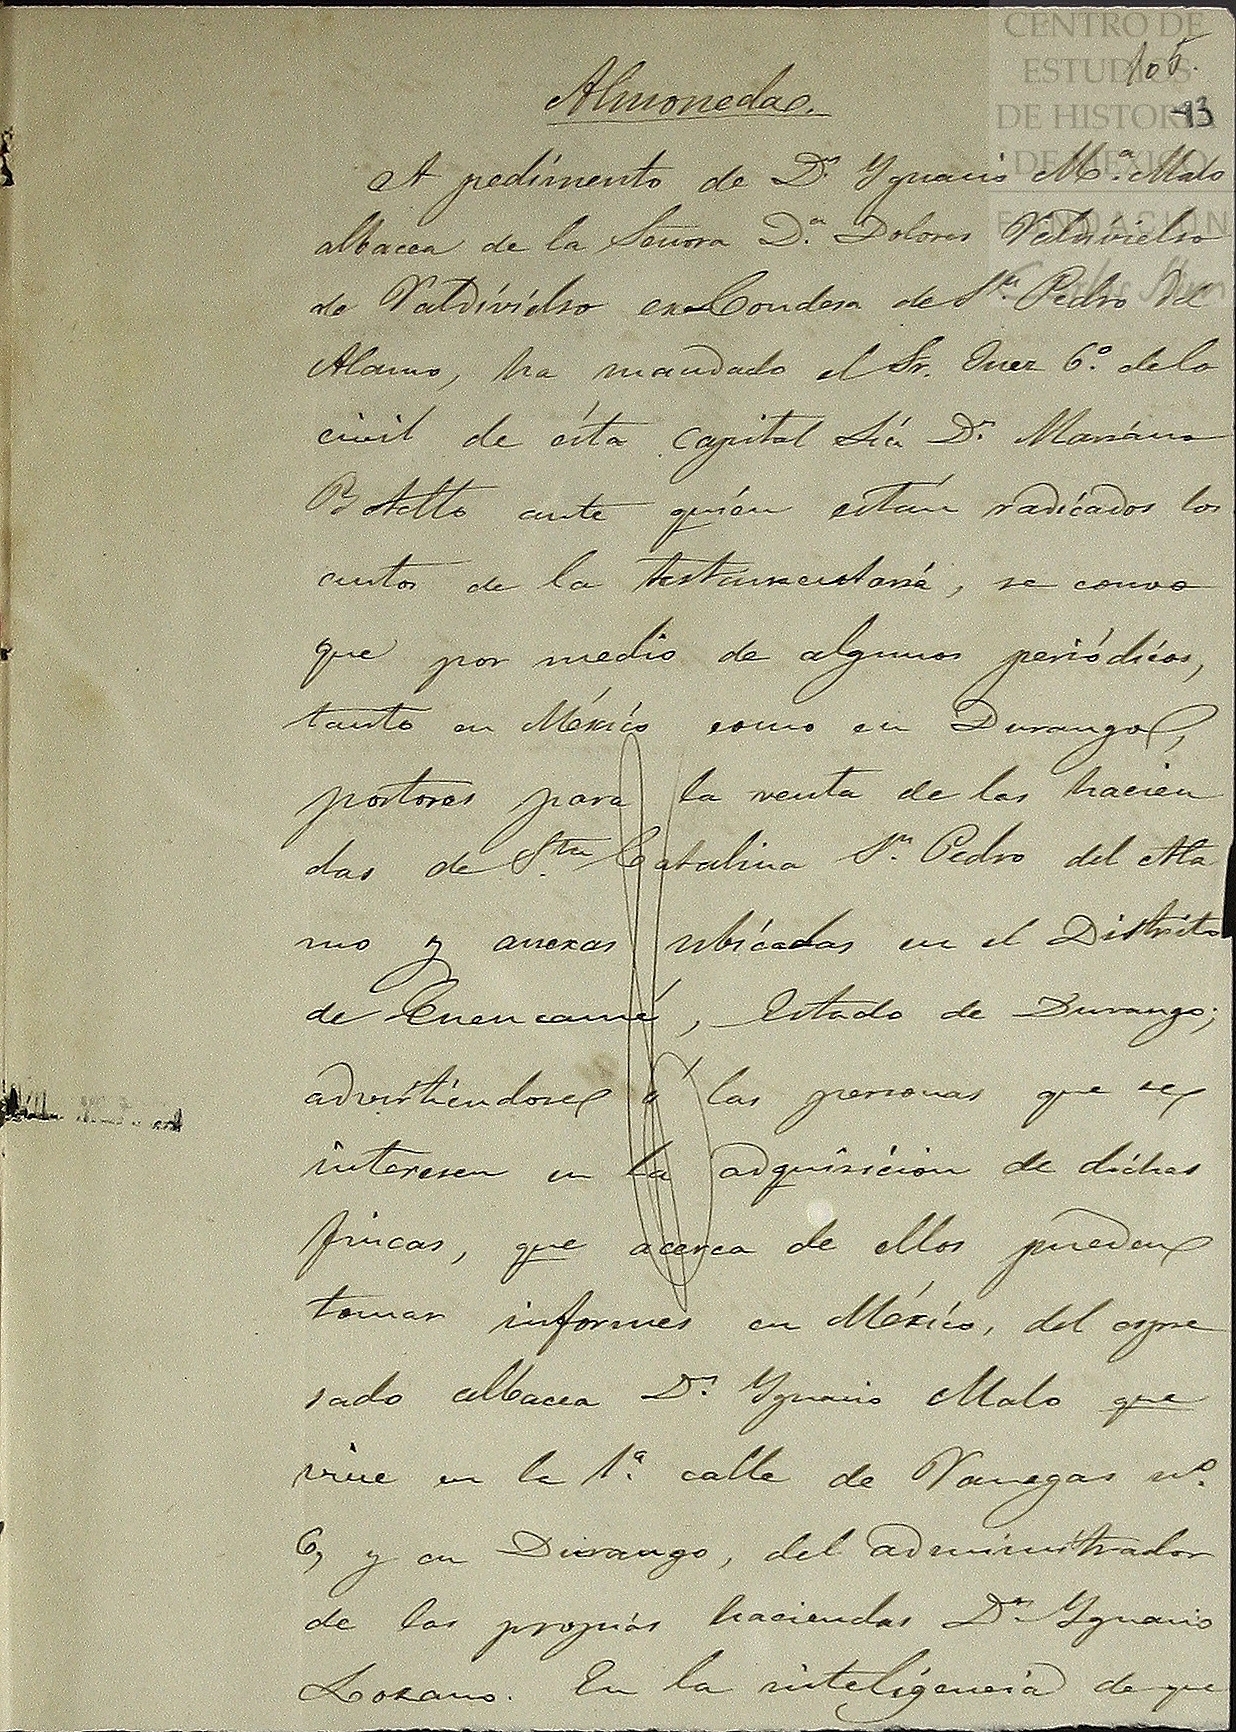 CENTRO DE
ESTUDIOS
DE HISTORIA
DE MEXICO
FUNDACIÓN
105.
13
Almoneda.
A pedimento de Dn. Ygnacio Ma. Malo
albacea de la Señora Da. Dolores
de Valdivielso ex Condesa de Sn. Pedro del
Alamo, ha mandado el Sr. Juez 6o. de lo
civil de ésta Capital Lic Dn. Mariano
Botello ante quién están radicados los
autos de la testamentaria, se convo
que por medio de algunos periódicos,
tanto en México como en Durango,
postores para la venta de las hacien
das de Sta. Catalina Sn. Pedro del Ala
mo y anexas ubicadas en el Distrito
de Cuencamé, Estado de Durango;
advirtiendose á las personas que se
interesen en la adquisicion de dichas
fincas, que acerca de ellos pueden
tomar informes en México, del espre
sado albacea Dn. Ygnacio Malo que
vive en la 1a. calle de Vanegas no.
6, y en Durango, del administrador
de las propias haciendas Dn. Ygnacio
Lozano. En la inteligencia de que